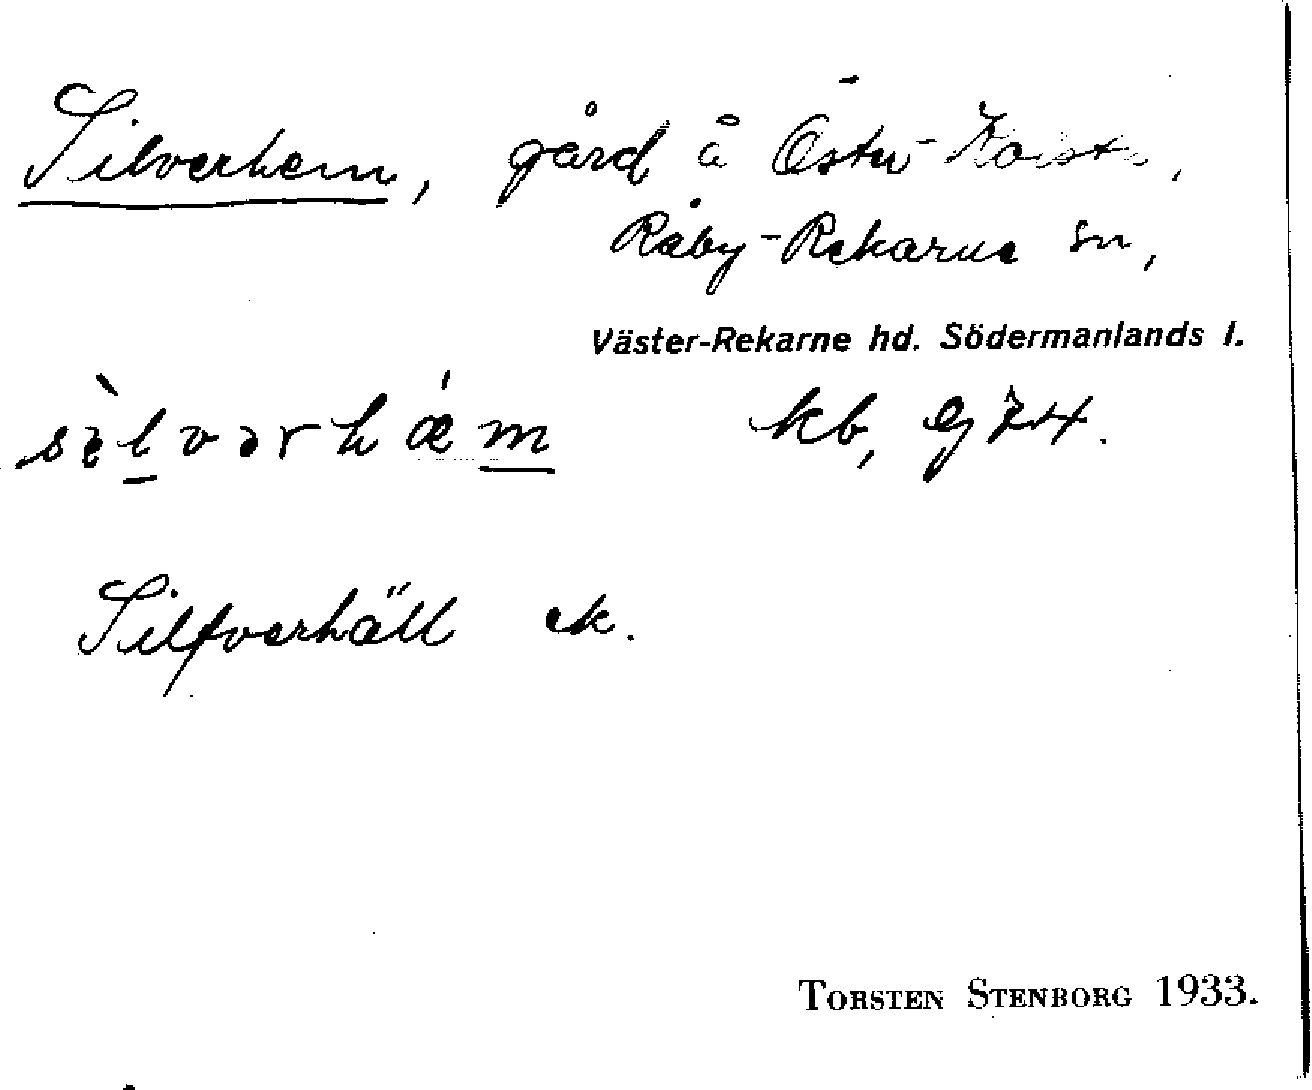 Silverhem, gård å Öster-
Råby-Rekarne sn,
Väster-Rekarne hd. Södermanlands l.
sèlvərhǽm kb, ej 74.
Silfverhäll ek.
TORSTEN STENBORG 1933.